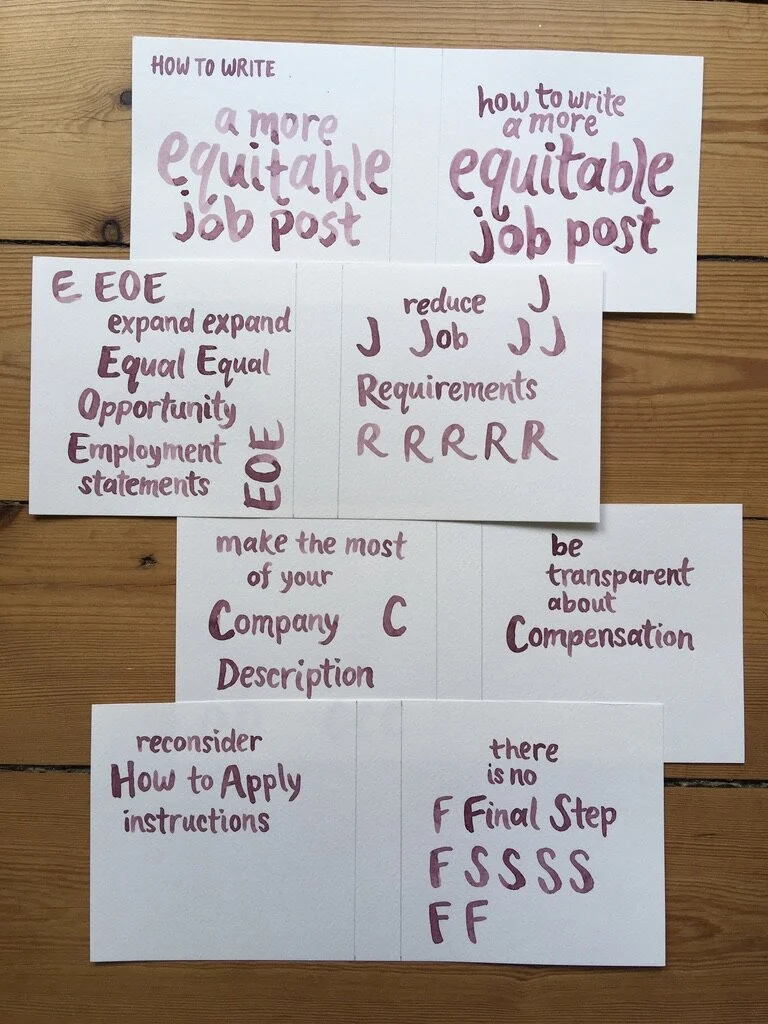 HOW TO WRITE
a more
equitable
job post
how to write
a more
equitable
job post
E EOE
expand expand
Equal Equal
Opportunity
Employment
statements
EOE
J
reduce
J Job J J
Requirements
R R R R R
make the most
of your
Company C
Description
be
transparent
about
Compensation
reconsider
How to Apply
instructions
there
is no
F Final Step
F S S S S
F F